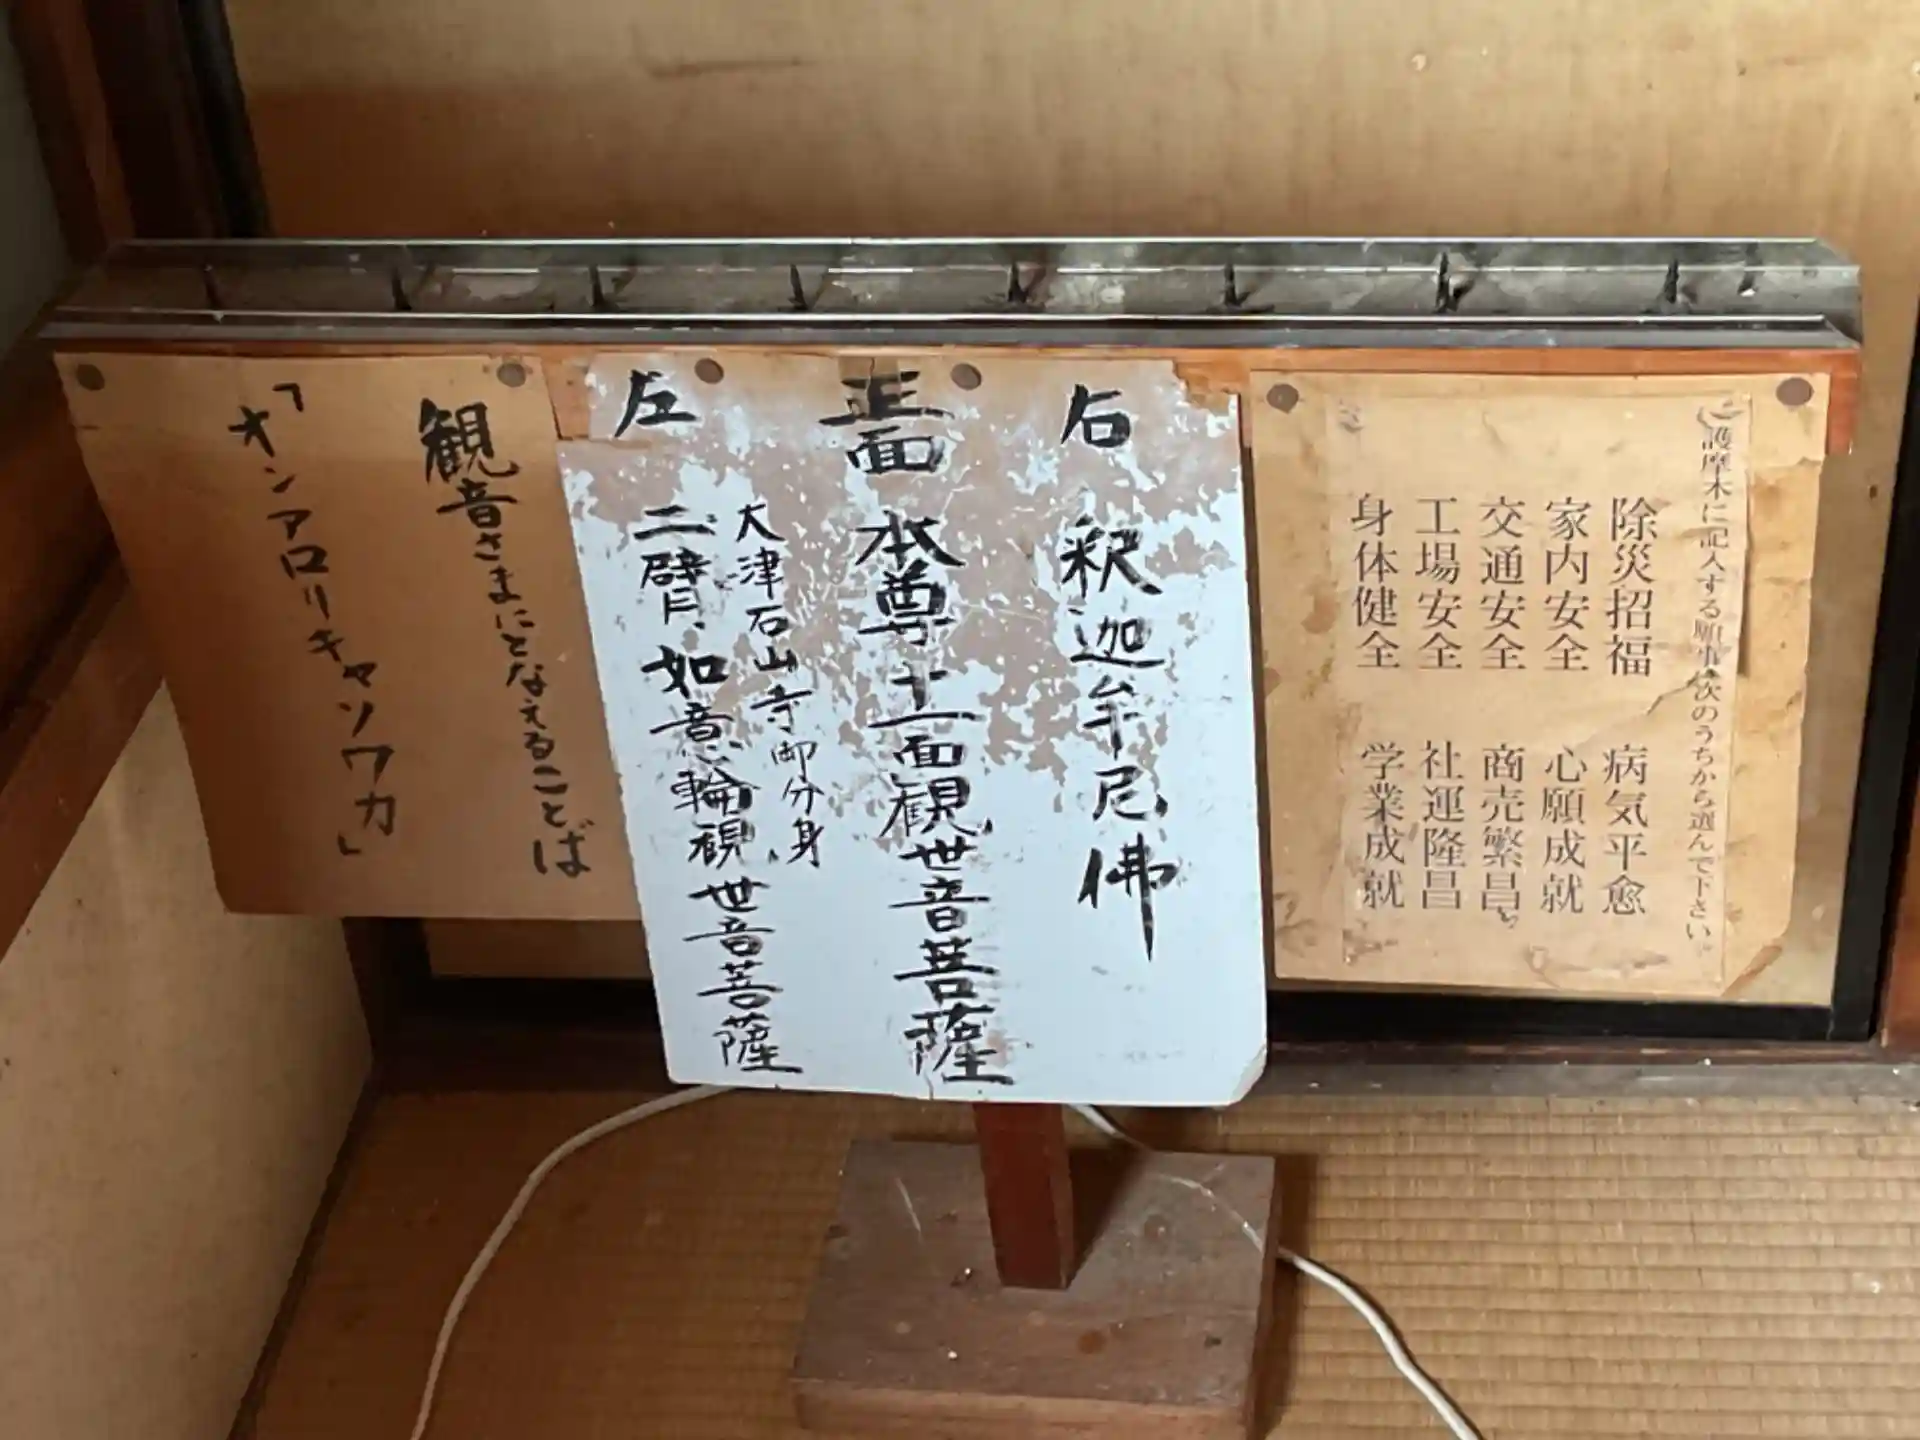 護摩木に記入する願事は次のうちから選んで下さい。
除災招福　病気平愈
家内安全　心願成就
交通安全　商売繁昌
工場安全　社運隆昌
身体健全　学業成就
右　釈迦牟尼佛
正面　本尊十一面観世音菩薩
大津石山寺御分身
左　二臂如意輪観世音菩薩
観音さまにとなえることば
「オンアロリキャソワカ」